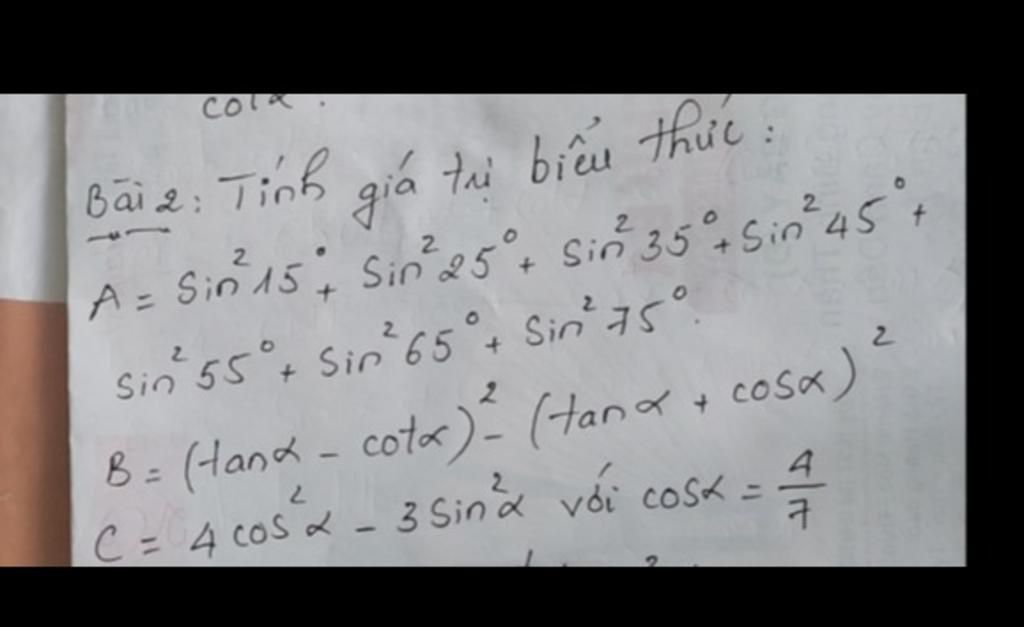 cotα.
Bài 2: Tính giá trị biểu thức:
A = Sin²15° + Sin²25° + Sin²35° + Sin²45° +
Sin²55° + Sin²65° + Sin²75°.
B = (tanα - cotα)² - (tanα + cosα)²
C = 4cos²α - 3Sin²α với cosα = 4/7